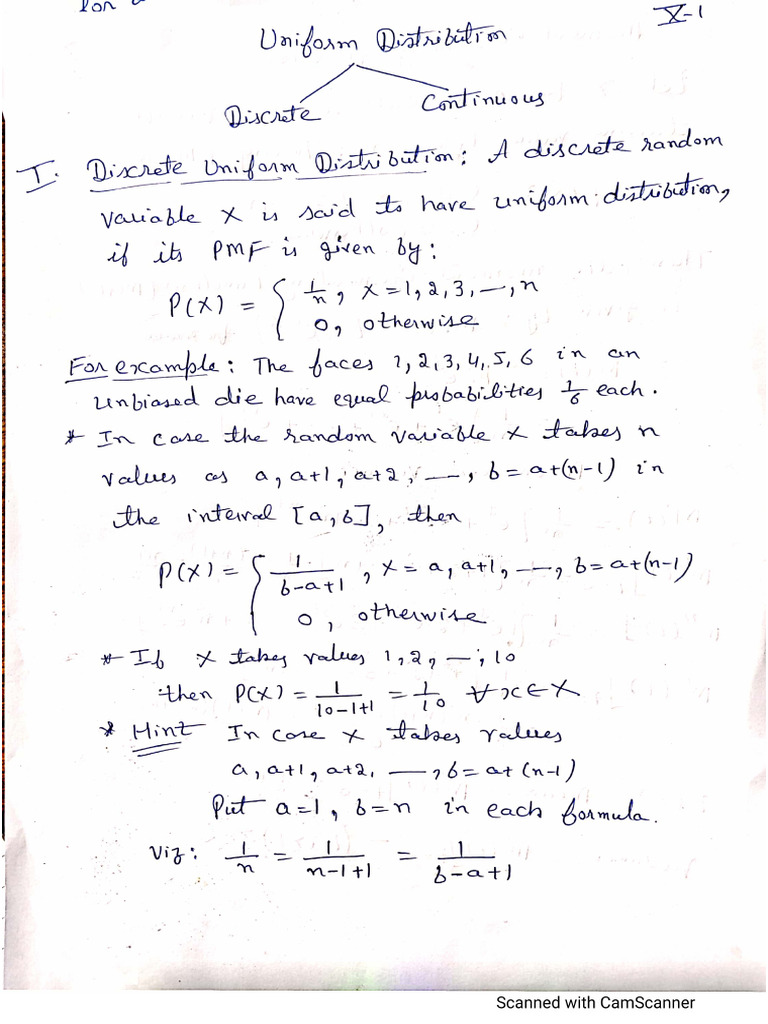 for a
X-1
Uniform Distribution
Discrete
Continuous
I. Discrete Uniform Distribution: A discrete random
variable X is said to have uniform distribution,
if its PMF is given by:
P(X) = { 1/n, X=1,2,3,—,n
0, otherwise
For example: The faces 1,2,3,4,5,6 in an
unbiased die have equal probabilities 1/6 each.
* In case the random variable X takes n
values as a, a+1, a+2, —, b=a+(n-1) in
the interval [a,b], then
P(X) = { 1/(b-a+1), X = a, a+1, —, b=a+(n-1)
0, otherwise
* If X takes values 1,2, —, 10
then P(X) = 1/(10-1+1) = 1/10 ∀ x ∈ X
* Hint In case X takes values
a, a+1, a+2, —, b=a+(n-1)
Put a=1, b=n in each formula.
Viz: 1/n = 1/(n-1+1) = 1/(b-a+1)
Scanned with CamScanner